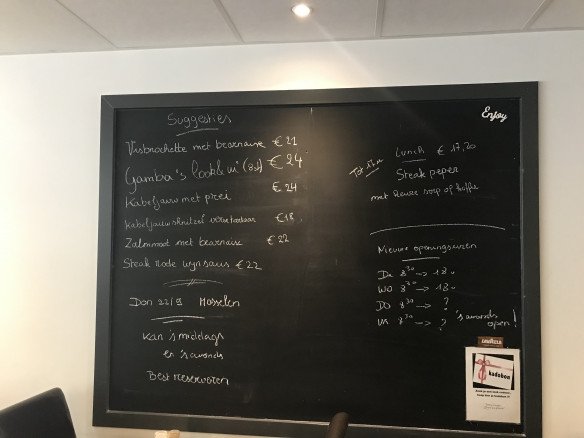 Suggesties
Visbrochette met bearnaise € 21
Gamba's look & ui (8st) € 24
Kabeljauw met prei € 24
Kabeljauwschnitzel € 18
Zalmmoot met bearnaise € 22
Steak rode wijnsaus € 22
Don 22/9 Mosselen
Kan 's middags
en 's avonds
Best reserveren
Enjoy
Lunch € 17,20
Steak peper
met keuze soep of koffie
Nieuwe openingsuren
Di 8³⁰ → 18⁰⁰
WO 8³⁰ → 18⁰⁰
DO 8³⁰ → ?
VR 8³⁰ → ? 's avonds open!
LAVAZZA
kadobon